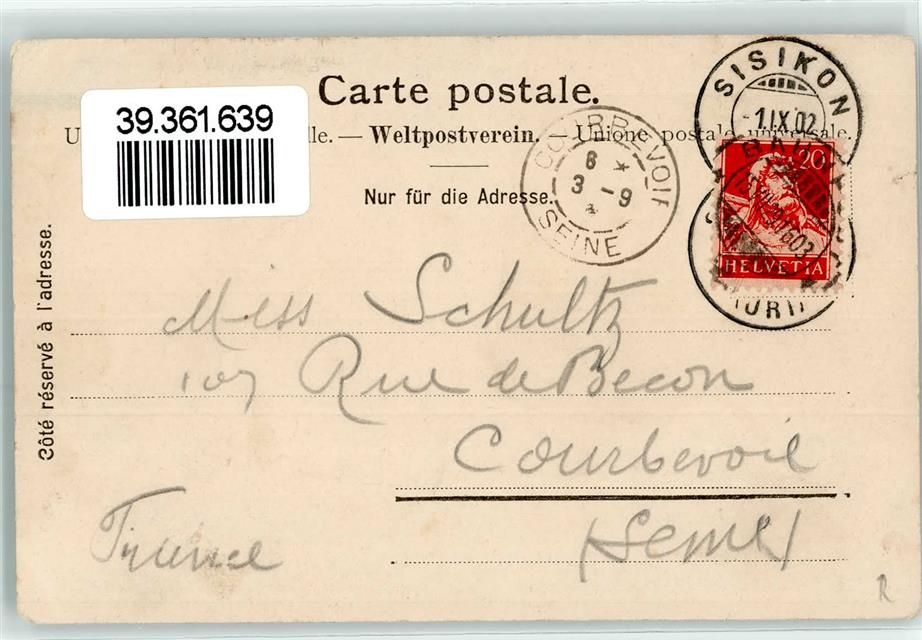 Carte postale.
39.361.639
U lle. — Weltpostverein. — Unione postale universale.
Nur für die Adresse.
Côté réservé à l'adresse.
COURBEVOIE
6 *
3 - 9
*
SEINE
SISIKON
-1.IX.02
(URI)
20
HELVETIA
Miss Schultz
107 Rue de Becon
Courbevoie
(Seine)
France
R